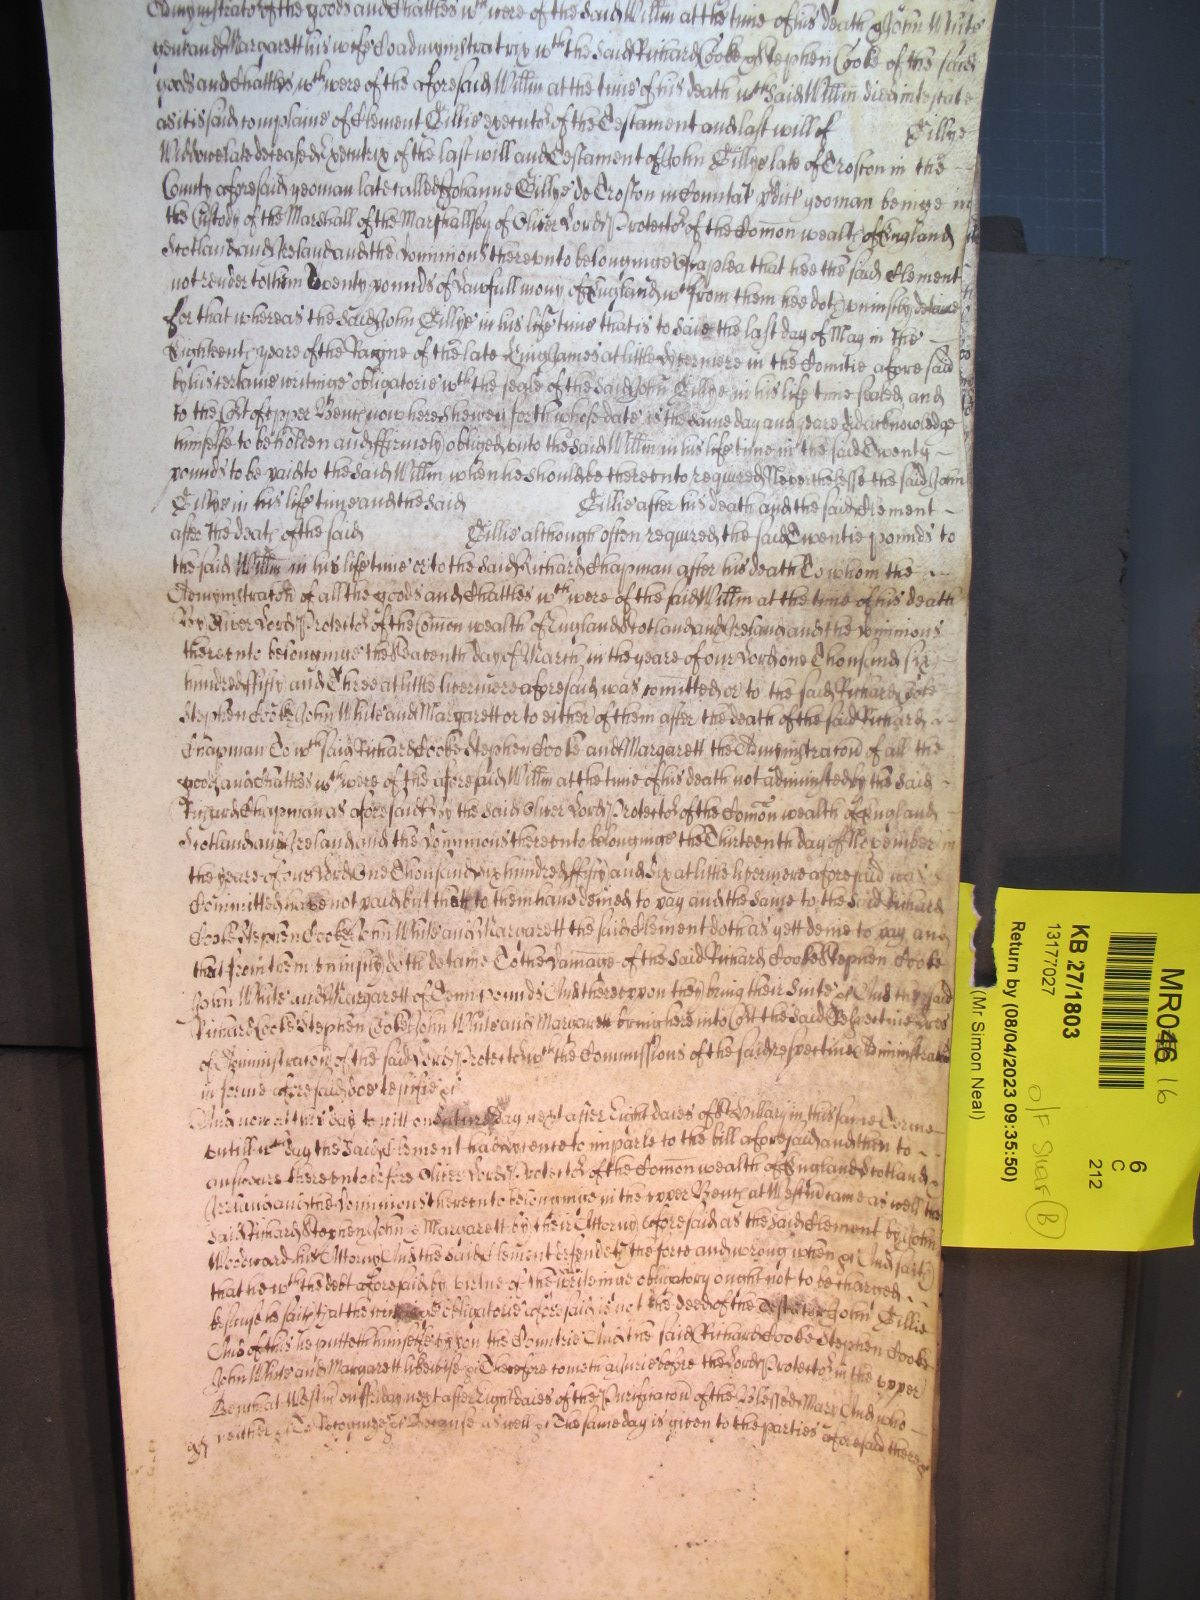 Admynistrator of the goods and Chattles wch were of the said Willm at the time of his death & John White
gent and Margarett his wife Coadmynistratrix wth the said Richard Cooke & Stephen Cooke of the said
goods and Chattles wch were of the aforesaid Willm at the time of his death wch said Willm died intestate
as it is said complaine of Clement Gillie executor of the Testament and last will of Gillye
Widdowe late deceased Executrix of the last will and Testament of John Gillye late of Croston in the
County aforesaid yeoman late called Johanne Gillye de Croston in Comitat yeoman beinge in
the Custody of the Marshall of the Marshallsey of Oliver Lord Protector of the Comon wealth of England
Scotland and Ireland and the dominions thereunto belonginge Of a plea that hee the said Clement
not render to them Twenty pounds of lawfull mony of England wch from them hee doth uniustly detaine
for that whereas the said John Gillye in his life time that is to saie the last day of May in the
Eighteenth yeare of the Raigne of the late King James at little Livermere in the Comitie afore said
by his certaine writinge obligatorie wth the seale of the said John Gillye in his life time sealed and
to the Cort of upper Bench now here shewen forth whose date is the same day and yeare did acknowledge
himselfe to be holden and ffirmely obliged unto the said Willm in his life time in the said Twenty
pounds to be paid to the said Willm when he should be thereunto required Neverthelesse the said John
Gillye in his life time and the said Gillie after his death and the said Clement
after the death of the said Gillie although often required the said Twentie pounds to
the said Willm in his life time or to the said Richard Chapman after his death To whom the
Admynistracon of all the goods and Chattles wch were of the said Willm at the time of his death
By Oliver Lord Protector of the Comon wealth of England Scotland and Ireland and the dominions
thereunto belonginge the Seaventh day of March in the yeare of our Lord one Thousand six
hundred ffifty and Three at little livermere aforesaid was comitted or to the said Richard Cooke
Stephen Cooke John White and Margarett or to either of them after the death of the said Richard
Chapman To wch said Richard Cooke Stephen Cooke and Margarett the Admynistracon of all the
goods and Chattles wch were of the aforesaid Willm at the time of his death not administred by the said
Richard Chapman as aforesaid by the said Oliver Lord Protector of the Comon wealth of England
Scotland and Ireland and the dominions thereunto belonginge the Thirteenth day of November in
the yeare of our Lord One Thousand six hundred ffifty and Six at little livermere aforesaid was
Committed have not paid but that to them hand denied to pay and the same to the said Richard
Cooke Stephen Cooke John White and Margarett the said Clement doth as yett denie to pay and
that from them uniustly doth detaine To the damage of the said Richard Cooke Stephen Cooke
John White and Margarett of Tenn pounds And thereupon they bring their Suite &c And the said
Richard Cooke Stephen Cooke John White and Margarett bring here into Cort the said Respective Lres
of Administracon of the said Lord Protector wch the Commissions of the said respective Administracon
in forme aforesaid doe testifie &c
And now at this day to witt on Saturday next after Eight daies of St Hillary in this same Terme
untill wch day the said Clement had licence to imparle to the bill aforesaid and then to
answeare thereunto before Oliver Lord Protector of the Comon wealth of England Scotland
Ireland and the dominions thereunto belonginge in the upper Bench at Westm came as well the
said Richard Stephen John & Margarett by their Attorny aforesaid as the said Clement by John
Woodward his Attorny And the said Clement defendeth the force and wrong when &c And saith
that he wth the debt aforesaid by virtue of the writeinge obligatory ought not to be charged
because he saith that the obligatorie aforesaid is not the deed of the Testator John Gillie
And of this he putteth himselfe upon the Countrie And the said Richard Cooke Stephen Cooke
John White and Margarett likewise &c Therefore cometh a Jurie before the Lord Protector in the upper
Bench at Westm on ffriday next after Eight daies of the Purificacon of the Blessed Mary And who
neither &c To Recognize &c Because as well &c The same day is given to the parties aforesaid there &c
MR046 16
6
C
212
KB 27/1803
13177027
Return by (08/04/2023 09:35:50)
(Mr Simon Neal)
B